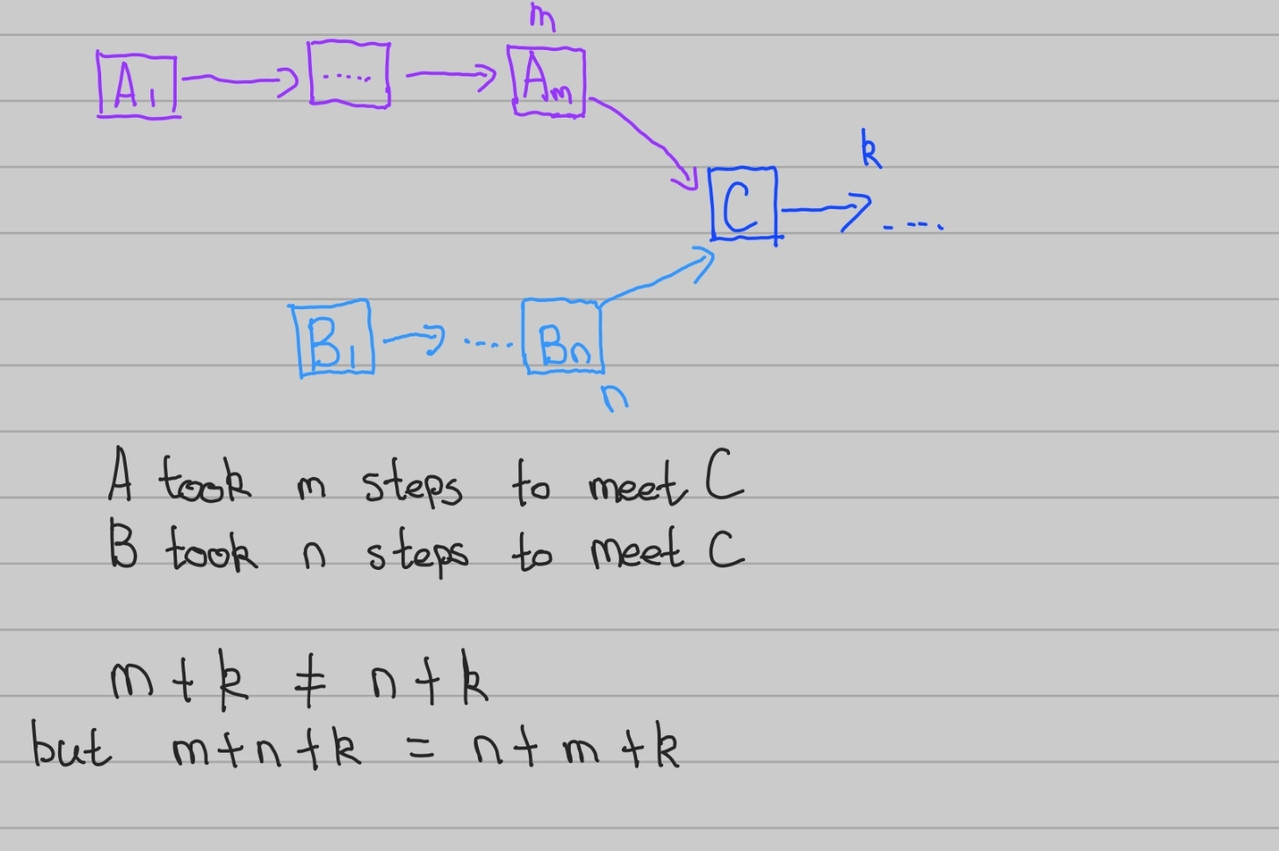 m
A1 ..... Am
k
C ....
B1 .... Bn
n
A took m steps to meet C
B took n steps to meet C
m + k ≠ n + k
but m + n + k = n + m + k